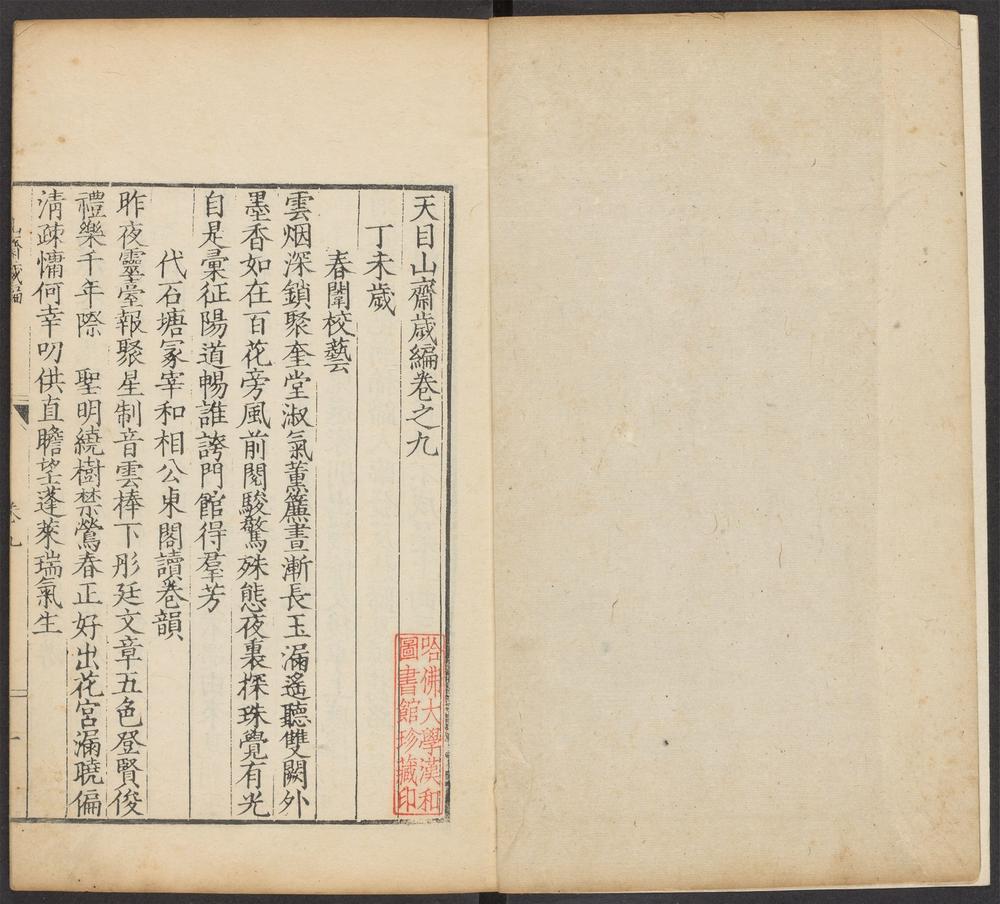 天目山齋歲編卷之九
丁未歲
春闈校藝
雲烟深鎖聚奎堂淑氣薰簾晝漸長玉漏遙聽雙闕外
墨香如在百花旁風前閱駿驚殊態夜裏探珠覺有光
自是彙征陽道暢誰誇門館得羣芳
代石塘冢宰和相公東閣讀卷韻
昨夜靈臺報聚星制音雲棒下彤廷文章五色登賢俊
禮樂千年際　聖明繞樹禁鶯春正好出花宮漏曉偏
清疎慵何幸叨供直瞻望蓬萊瑞氣生
歲編
卷九
一
哈佛大學漢和
圖書館珍藏印